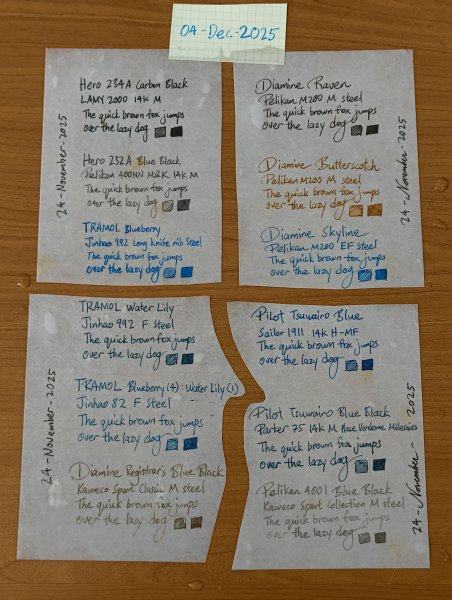 04-Dec-2025
Hero 234A Carbon Black
LAMY 2000 14K M
The quick brown fox jumps
over the lazy dog
Hero 232A Blue Black
Pelikan 400NN M2K 14K M
The quick brown fox jumps
over the lazy dog
TRAMOL Blueberry
Jinhao 992 Long knife nib Steel
The quick brown fox jumps
over the lazy dog
24-November-2025
Diamine Raven
Pelikan M200 M steel
The quick brown fox jumps
over the lazy dog
Diamine Butterscotch
Pelikan M200 M steel
The quick brown fox jumps
over the lazy dog
Diamine Skyline
Pelikan M200 EF steel
The quick brown fox jumps
over the lazy dog
24-November-2025
TRAMOL Water Lily
Jinhao 992 F Steel
The quick brown fox jumps
over the lazy dog
TRAMOL Blueberry (4): Water Lily (1)
Jinhao 82 F Steel
The quick brown fox jumps
over the lazy dog
Diamine Registrar's Blue Black
Kaweco Sport Classic M steel
The quick brown fox jumps
over the lazy dog
24-November-2025
Pilot Tsuwairo Blue
Sailor 1911 14K H-MF
The quick brown fox jumps
over the lazy dog
Pilot Tsuwairo Blue Black
Parker 75 14K M Place Vendome Milleraies
The quick brown fox jumps
over the lazy dog
Pelikan 4001 Blue Black
Kaweco Sport Collection M steel
The quick brown fox jumps
over the lazy dog
24-November-2025